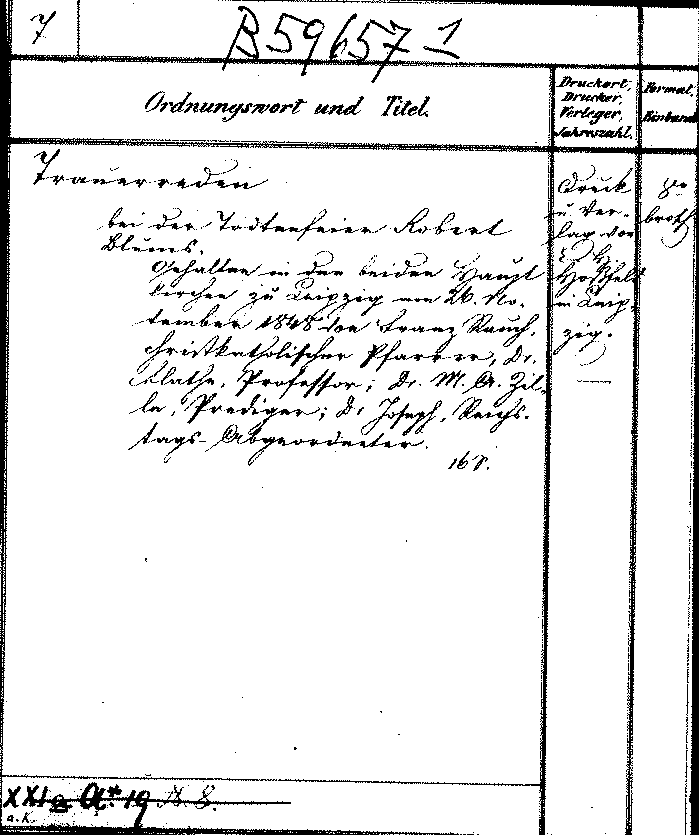 7
B 59657 1
Ordnungswort und Titel.
Druckort,
Drucker,
Verleger,
Jahreszahl.
Format,
Einband
Trauerreden
bei der Todtenfeier Robert
Blums.
Gehalten in den beiden Haupt
kirchen zu Leipzig am 26. No-
vember 1848 von Franz Rauch,
christkatholischer Pfarrer, Dr.
Flathe, Professor; Dr. M. A. Zil-
le, Prediger; Dr Joseph, Reichs-
tags-Abgeordneter.
16 S.
Druck
u. Ver-
lag von
Hoßfeld
in Leip-
zig.
—
8o
broch
XXI a A* 19 N. 8.
a. K.